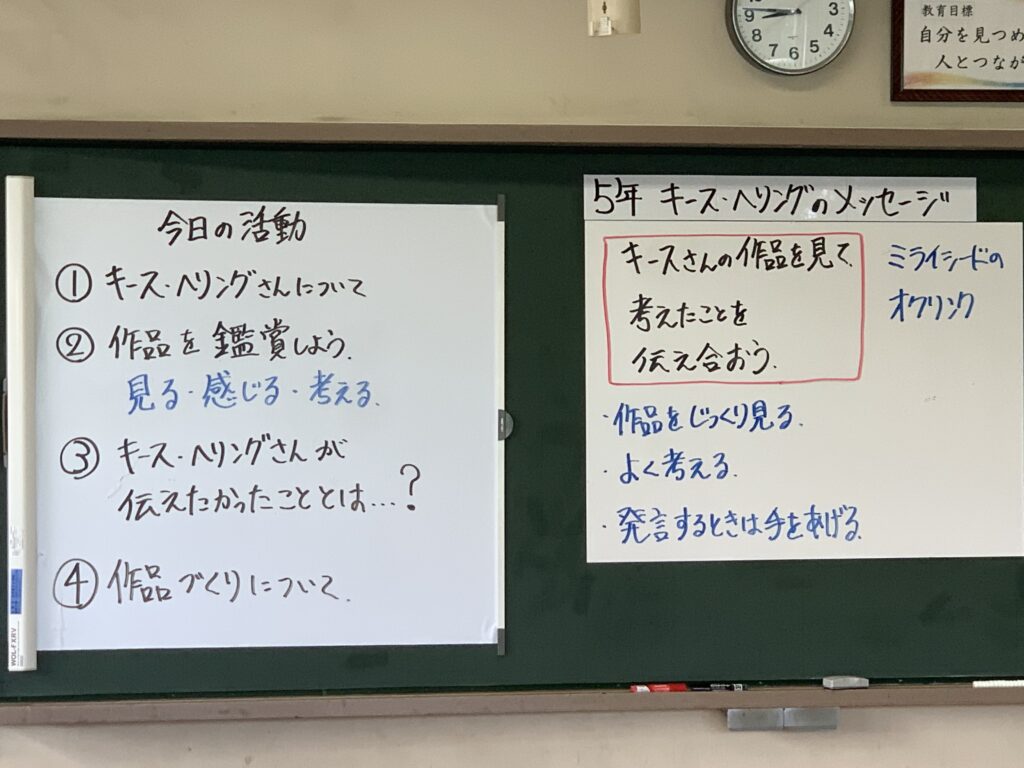 今日の活動
① キース・ヘリングさんについて
② 作品を鑑賞しよう.
見る・感じる・考える.
③ キース・ヘリングさんが
伝えたかったこととは…?
④ 作品づくりについて.
WOL-FXRV
5年 キース・ヘリングのメッセージ
キースさんの作品を見て
考えたことを
伝え合おう.
ミライシードの
オクリンク
・作品をじっくり見る.
・よく考える.
・発言するときは手をあげる.
3
4
5
6
7
8
9
教育目標
自分を見つめ
人とつなが